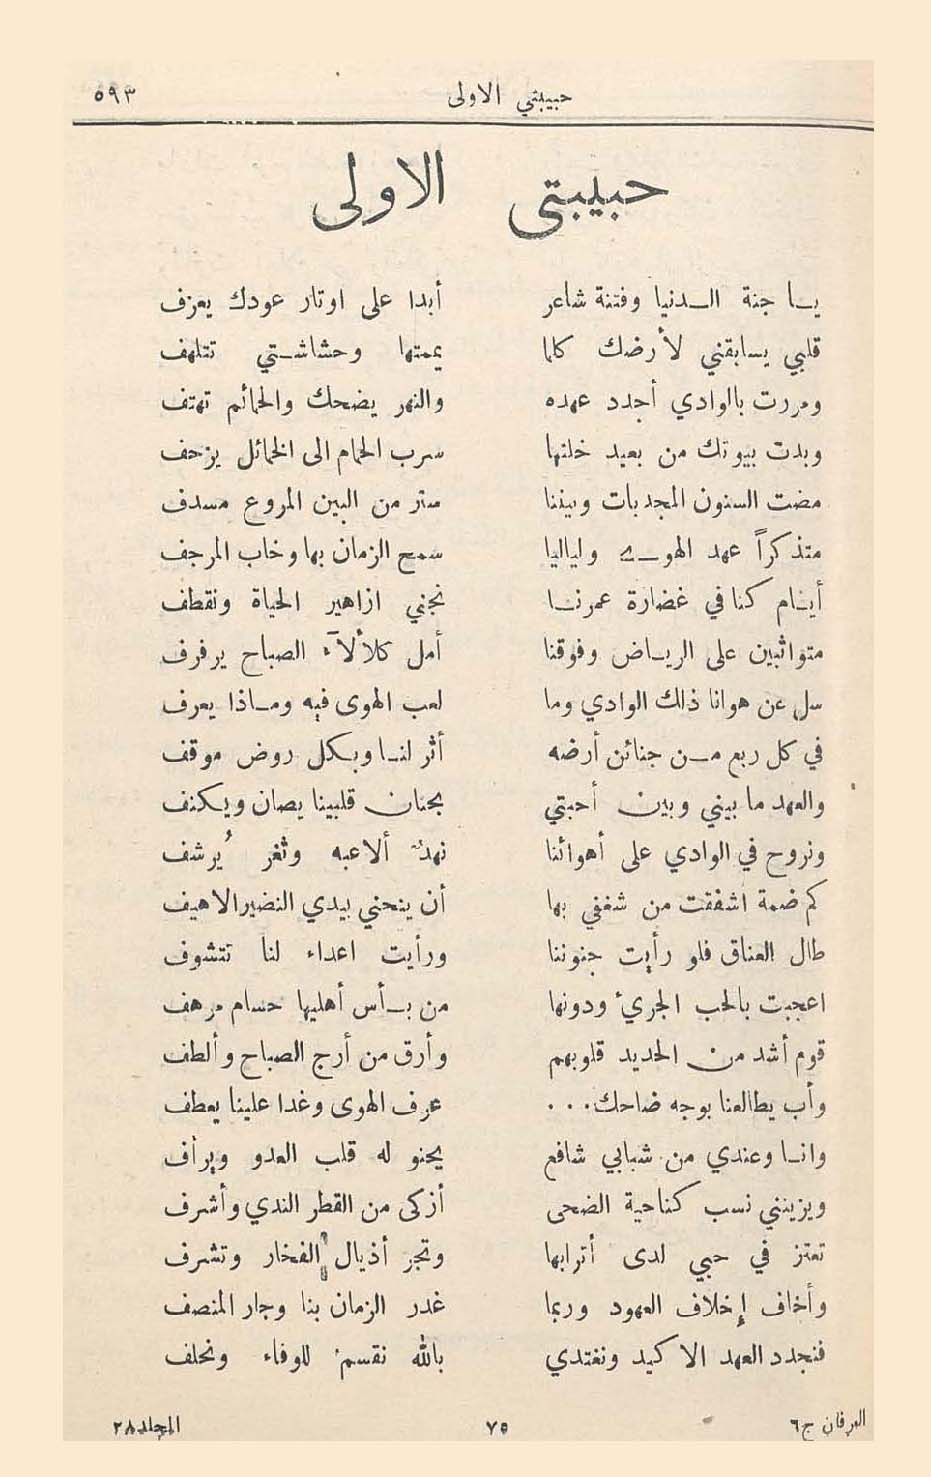 حبيبتي الاولى ٥٩٣
حبيبتي الاولى
يا جنة الدنيا وفتنة شاعر أبدا على اوتار عودك يعزف
قلبي يسابقني لأرضك كلما يممتها وحشاشتي تتلهف
ومررت بالوادي أجدد عهده والنهر يضحك والحمائم تهتف
وبدت بيوتك من بعيد خلتها سرب الحمام الى الخمائل يزحف
مضت السنون المجدبات وبيننا ستر من البين المروع مسدف
متذكراً عهد الهوى ولياليا سمح الزمان بها وخاب المرجف
أيام كنا في غضارة عمرنا نجني ازاهير الحياة ونقطف
متواثبين على الرياض وفوقنا أمل كلألآء الصباح يرفرف
سل عن هوانا ذلك الوادي وما لعب الهوى فيه وماذا يعرف
في كل ربع من جنائن أرضه أثر لنا وبكل روض موقف
والعهد ما بيني وبين أحبتي بجنان قلبينا يصان ويكنف
ونروح في الوادي على أهوائنا نهد ألاعبه وثغر يُرشف
كم ضمة اشفقت من شغفي بها أن ينحني بيدي النضير الاهيف
طال العناق فلو رأيت جنوننا ورأيت اعداء لنا تتشوف
اعجبت بالحب الجريء ودونها من بأس أهليها حسام مرهف
قوم أشد من الحديد قلوبهم وأرق من أرج الصباح وألطف
وأب يطالعنا بوجه ضاحك... عرف الهوى وغدا علينا يعطف
وانا وعندي من شبابي شافع يحنو له قلب العدو ويرأف
ويزينني نسب كناحية الضحى أزكى من القطر الندي وأشرف
تعتز في حبي لدى أترابها وتجر أذيال الفخار وتشرف
وأخاف إخلاف العهود وربما غدر الزمان بنا وجار المنصف
فنجدد العهد الاكيد ونغتدي بالله نقسم للوفاء ونحلف
العرفان ج٦ ٧٥ المجلد ٢٨